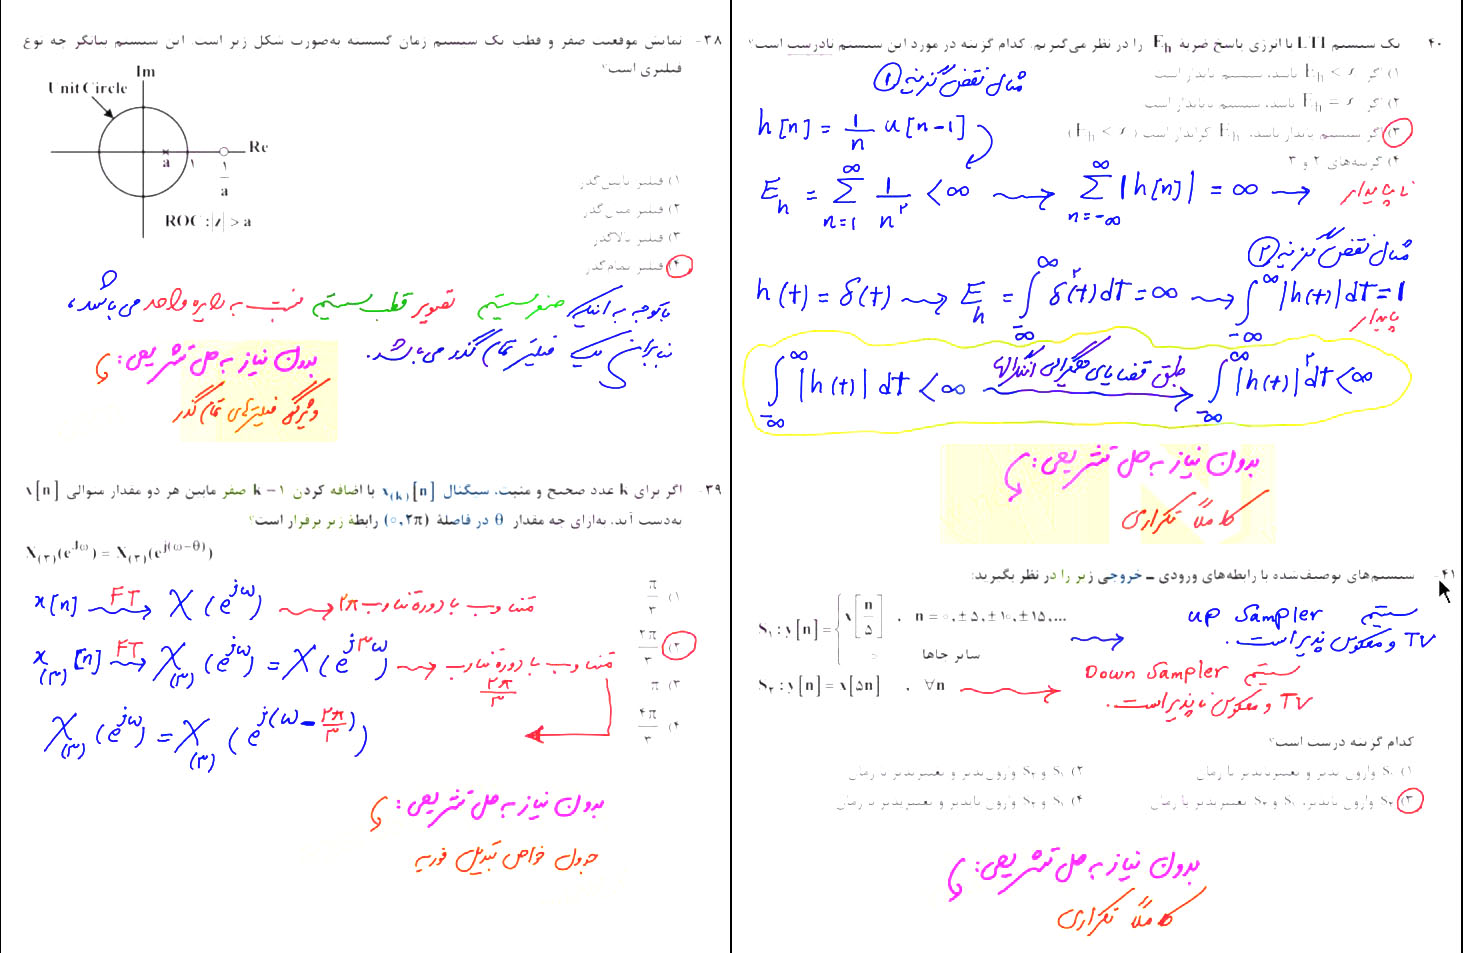 ۳۸- نمایش موقعیت صفر و قطب یک سیستم زمان گسسته به‌صورت شکل زیر است. این سیستم بیانگر چه نوع
فیلتری است؟
Im
Unit Circle
Re
a
۱
1/a
ROC : |z| > a
۱) فیلتر پایین‌گذر
۲) فیلتر میان‌گذر
۳) فیلتر بالاگذر
۴) فیلتر تمام‌گذر
با توجه به اینکه صفر سیستم تصویر قطب سیستم نسبت به دایره واحد می باشد،
بنابراین یک فیلتر تمام گذر می باشد.
بدون نیاز به حل تشریحی:
ویژگی فیلترهای تمام گذر
۳۹- اگر برای k عدد صحیح و مثبت، سیگنال x(k)[n] با اضافه کردن k − ۱ صفر مابین هر دو مقدار متوالی x[n]
به‌دست آید، به‌ازای چه مقدار θ در فاصلهٔ (۰,۲π) رابطهٔ زیر برقرار است؟
X(۳)(e^jω) = X(۳)(e^j(ω−θ))
۱) π/۳
۲) ۲π/۳
۳) π
۴) ۴π/۳
x[n] FT X(e^jω) متناوب با دوره تناوب ۲π
x(۳)[n] FT X(۳)(e^jω) = X(e^j۳ω) متناوب با دوره تناوب ۲π/۳
X(۳)(e^jω) = X(۳)(e^j(ω − ۲π/۳))
بدون نیاز به حل تشریحی:
جدول خواص تبدیل فوریه
۴۰ یک سیستم LTI با انرژی پاسخ ضربهٔ Eh را در نظر می‌گیریم. کدام گزینه در مورد این سیستم نادرست است؟
۱) اگر Eh < ∞ باشد، سیستم پایدار است
۲) اگر Eh = ∞ باشد، سیستم ناپایدار است
۳) اگر سیستم پایدار باشد، Eh کراندار است (Eh < ∞)
۴) گزینه‌های ۲ و ۳
مثال نقض گزینه ۱
h[n] = 1/n u[n−1]
Eh = ∑_{n=1}^{∞} 1/n^۲ < ∞ ∑_{n=−∞}^{∞} |h[n]| = ∞ ناپایدار
مثال نقض گزینه ۲
h(t) = δ(t) Eh = ∫_{−∞}^{∞} δ^۲(t)dt = ∞ ∫_{−∞}^{∞} |h(t)|dt = 1
پایدار
∫_{−∞}^{∞} |h(t)| dt < ∞ طبق قضایای همگرایی انتگرالها ∫_{−∞}^{∞} |h(t)|^۲ dt < ∞
بدون نیاز به حل تشریحی:
کاملاً تکراری
۴۱. سیستم‌های توصیف‌شده با رابطه‌های ورودی ـ خروجی زیر را در نظر بگیرید:
S۱ : y[n] = { x[n/۵] , n = ۰, ±۵, ±۱۰, ±۱۵, ...
۰ سایر جاها
S۲ : y[n] = x[۵n] , ∀n
سیستم up Sampler
TV و معکوس پذیر است.
سیستم Down Sampler
TV و معکوس ناپذیر است.
کدام گزینه درست است؟
۱) S۱ وارون پذیر و تغییرناپذیر با زمان
۲) S۱ و S۲ وارون‌پذیر و تغییرپذیر با زمان
۳) S۲ وارون ناپذیر، S۱ و S۲ تغییرپذیر با زمان
۴) S۱ و S۲ وارون ناپذیر و تغییرپذیر با زمان
بدون نیاز به حل تشریحی:
کاملاً تکراری